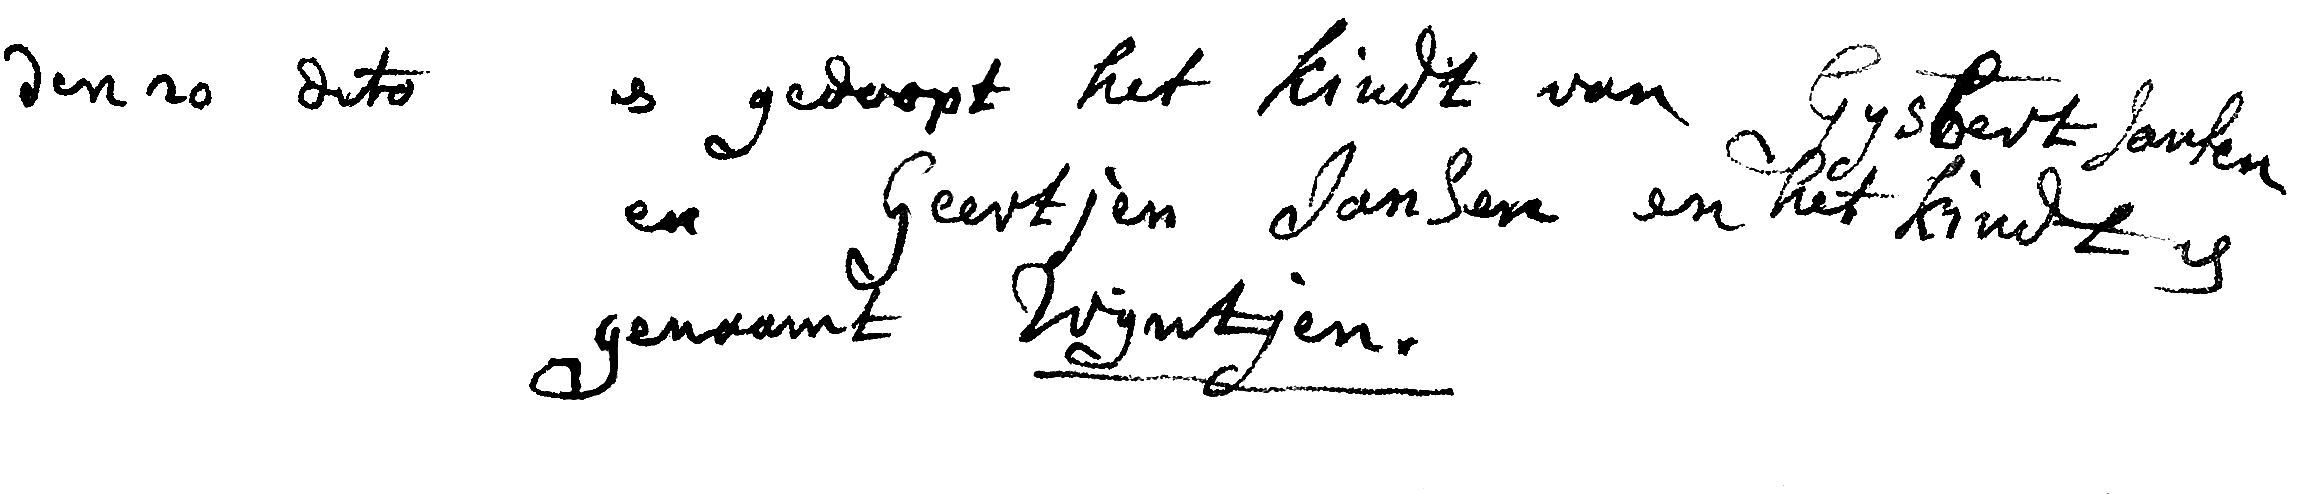 den 20 dito is gedoopt het kindt van Gysbert Jansen
en Geertjen Jansen en het kindt is
genaamt Wyntjen.